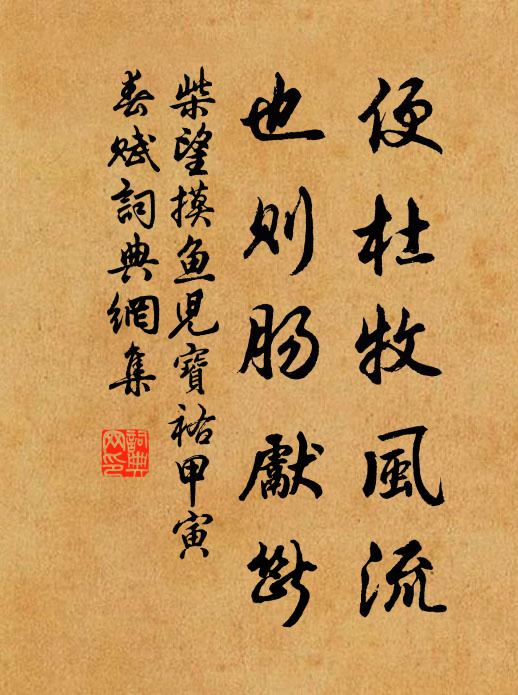 便杜牧風流
也則肠獻斷
柴望摸魚兒寶祐甲寅
春賦詞典網集
詞典
网印